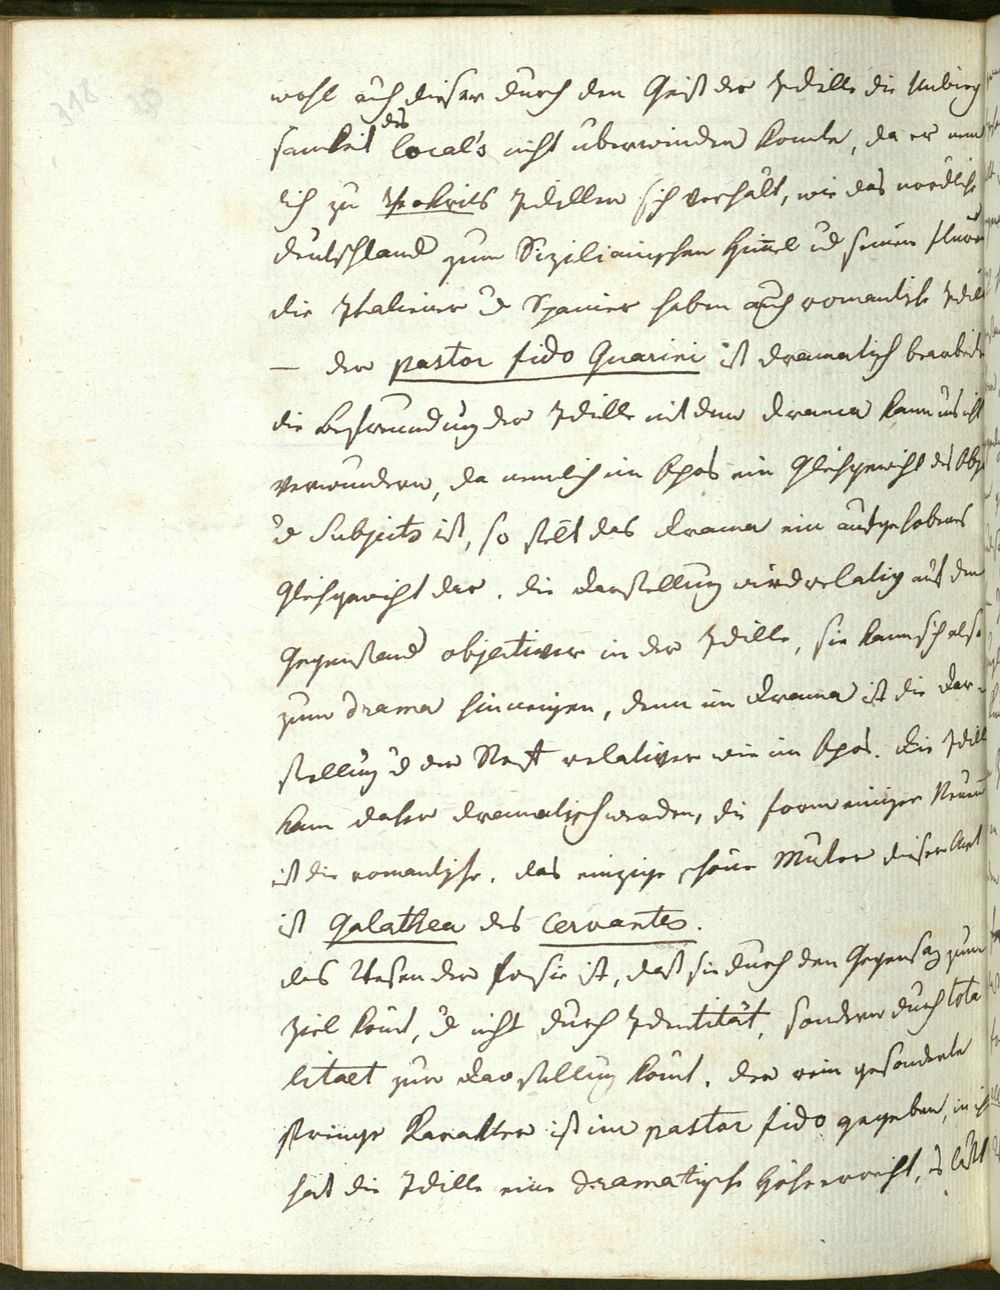 318
wohl auch dieser durch den Geist der Idille die Unbieg
samkeit des local's nicht überwinden konte, da er nem
lich zu Theokrits Idillen sich verhält, wie das nördliche
Deutschland zum Sizilianischen Himel und seinen Fluren
die Italiener und Spanier haben auch romantische Idill
— der pastor fido Guarini ist dramatisch bearbeitet
die Befreundung der Idille mit dem Drama kann uns nicht
verwundern, da nemlich im Epos ein Gleichgewicht des Obje
und Subjects ist, so stelt das Drama ein aufgehobenes
Gleichgewicht dar. die Darstellung wird relativ auf den
Gegenstand objectiver in der Idille, sie kann sich also
zum Drama hinneigen, denn im Drama ist die Dar-
stellung und der Stoff relativer wie im Epos. die Idill
kann daher dramatisch werden, die Form einiger Neuern
ist die romantische. das einzige schöne Muster dieser Art
ist Galathea des Cervantes.
das Wesen der Poesie ist, daß sie durch den Gegensaz zum
Ziel kömt, und nicht durch Identität, sondern durch tota
litaet zur Darstellung kömt. der rein gesonderte
strenge Karakter ist im pastor fido gegeben, in ihm
hat die Idille eine dramatische Höhe erreicht, es läßt